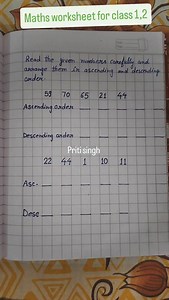 Maths worksheet for class 1,2
Read the given numbers carefully and
arrange them in ascending and descending
order:
59 70 65 21 44
Ascending order
Descending order
Priti singh
22 44 1 10 11
Asc-
Desc